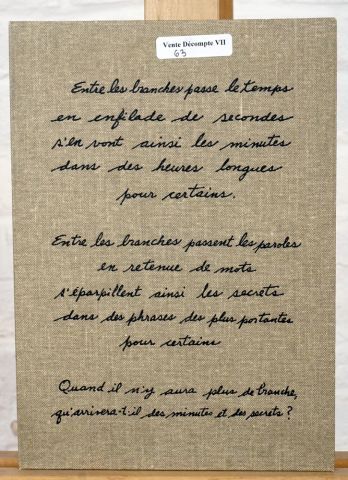 Vente Décompte VII
63
Entre les branches passe le temps
en enfilade de secondes
s'en vont ainsi les minutes
dans des heures longues
pour certains.
Entre les branches passent les paroles
en retenue de mots
s'éparpillent ainsi les secrets
dans des phrases des plus portantes
pour certains
Quand il n'y aura plus de branche,
qu'arrivera-t-il des minutes et des secrets?